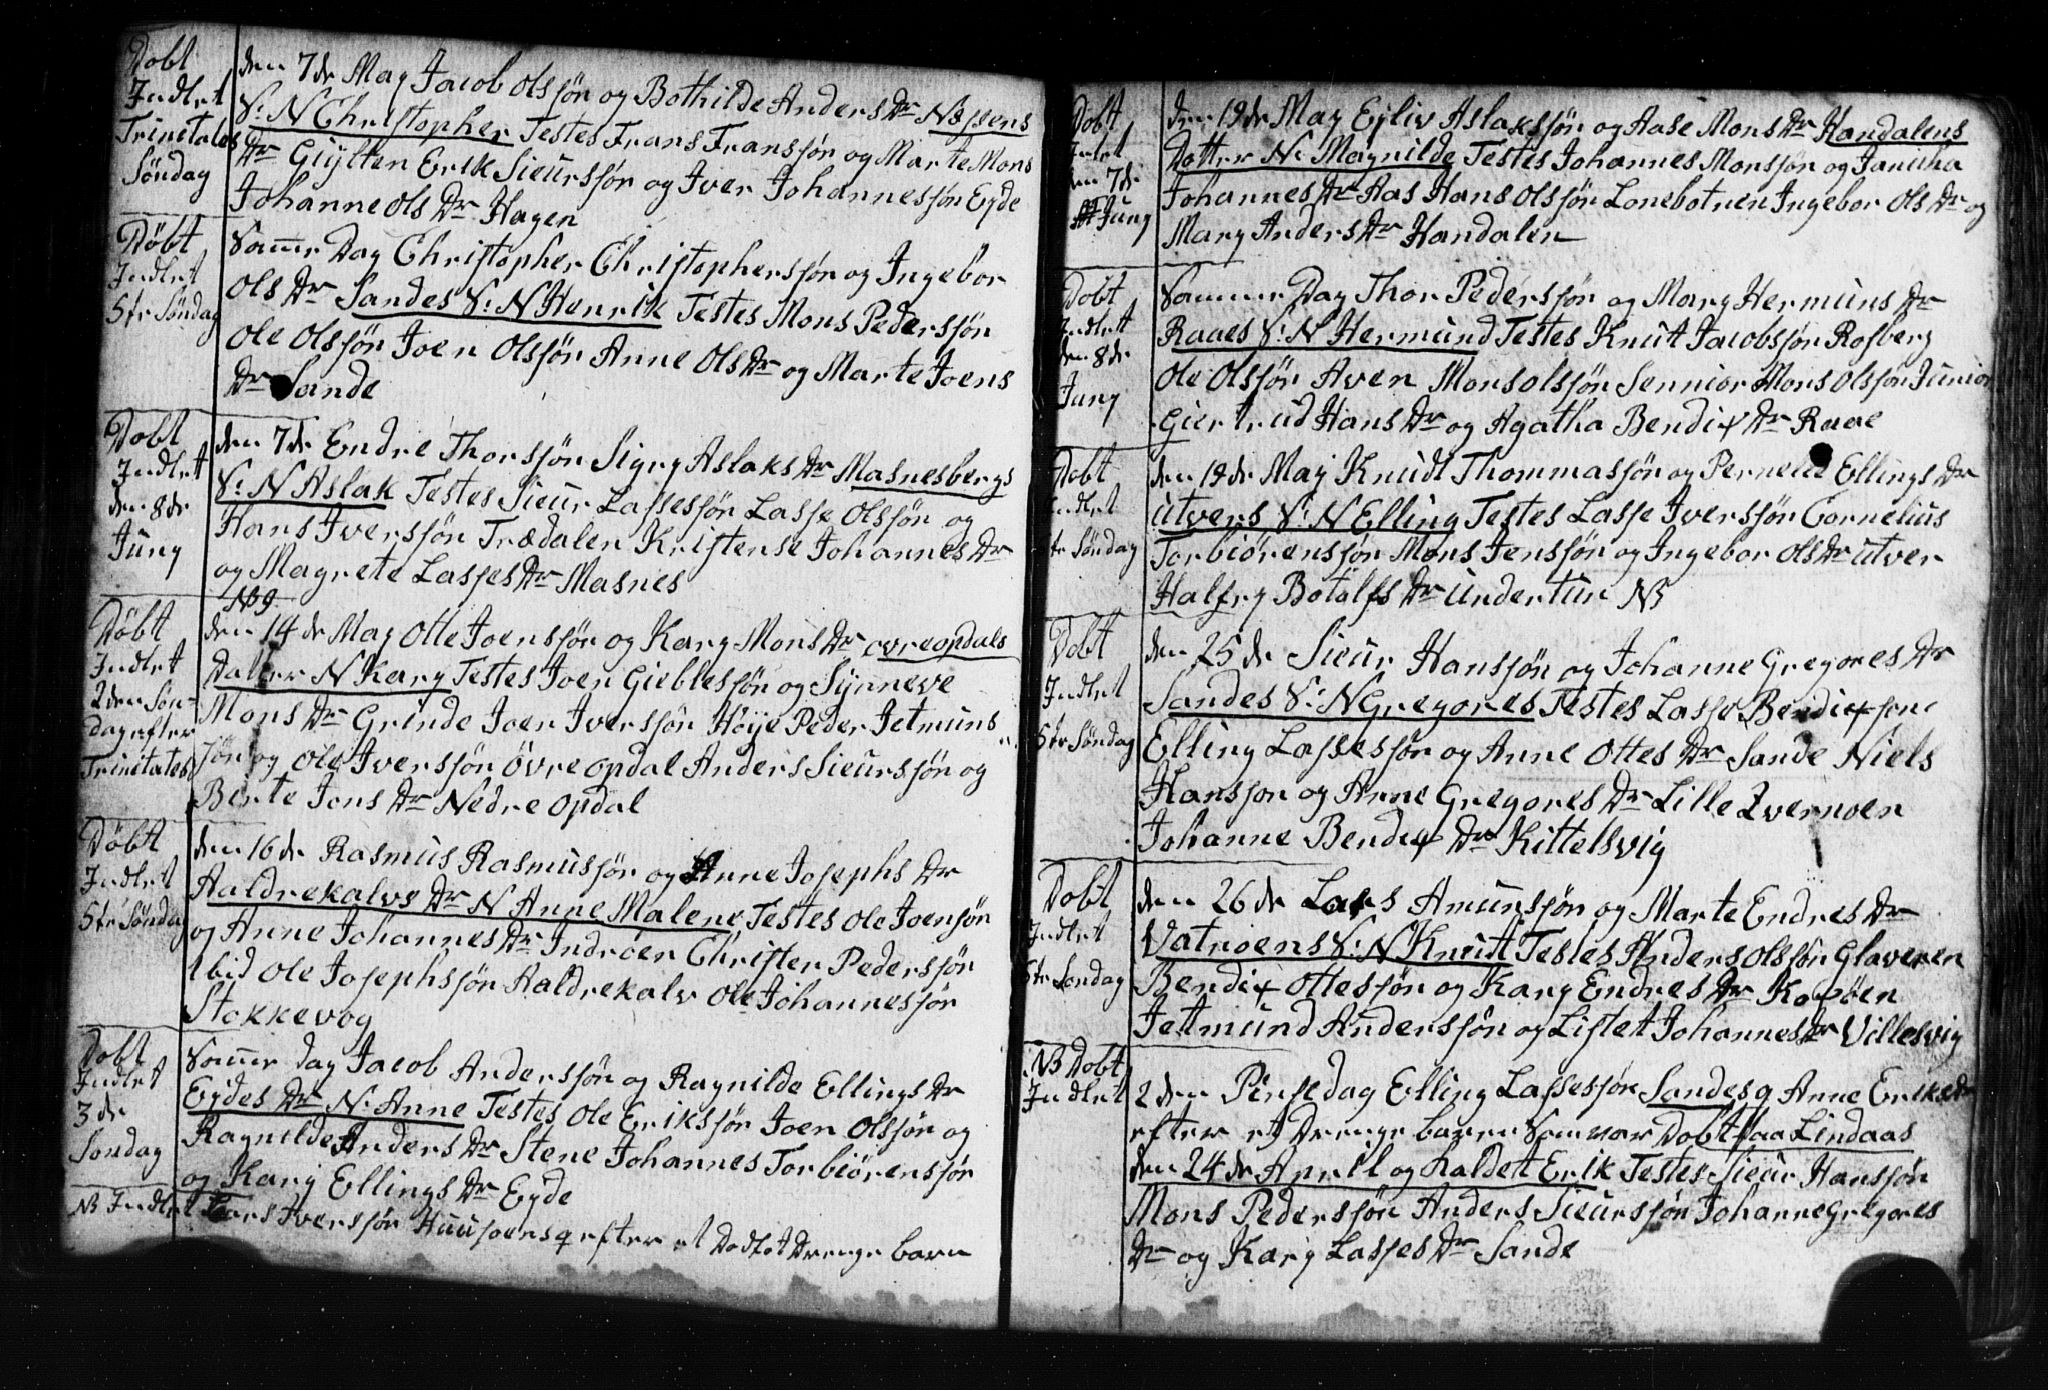 Döbt
Indlet
Trinitates
Søndag
den 7de May Jacob Olssøn og Bothilde Anders Dr Nessens
S: N Christopher Testes Frans Franssøn og Marte Mons
Dr Guÿlten Erik Sieurssør og Iver Johannessøn Eyde
Johanne Ols Dr Hagen
Döbt
Indlet
Str Söndag
Samer Dag Christopher Christopherssøn og Ingebor
Ols Dr Sandes S: N Henrik Testes Mons Pederssøn
Ole Olssør Joen Olssør Anne Ols Dr og Marte Joens
Dr Sande
Döbt
Indlet
den 8de
Juny
den 7de Endre Thorssør Sigry Aslaks Dr Masnesbergs
S: N Aslak Testes Sieur Lassesör Lasse Olssør og
Hans Iverssør Trædalen Kristense Johannes Dr
og Magrete Lasses Dr Masnes
No 9
Döbt
Indlet
2den Søn-
dag efter
Trinitates
den 14de May Otte Joenssør og Kary Mons Dr ovreopdals
Datter N Kary Testes Joen Gieblessør og Synneve
Mons Dr Grinde Joen Iverssør Høije Peder Jetmuns
sør og Ole Iverssør Övre Opdal Anders Sieurssør og
Berte Jons Dr Nedre Opdal
Döbt
Indlet
Str Søndag
den 16de Rasmus Rasmussør og Anne Josephs Dr
Aaldrekalvs Dr N Anne Malene Testes Ole Joensør
og Anne Johannes Dr Indrøen Christen Pederssør
Ibid Ole Josephssør Aaldrekalv Ole Johannessør
Stokkevog
Döbt
Indlet
3de
Søndag
Samer dag Jacob Anderssør og Ragnilde Ellings Dr
Eydes Dr N: Anne Testes Ole Erikssør Joen Olssør og
Ragnilde Anders Dr Stene Johannes Torbiörenssør
og Kary Ellings Dr Eyde
NB Indlet Lars Iverssør Huusoens q efter et Dødføt Drenge barn
Döbt
Inlet
den 7de
Juny
den 19de May Eyliv Aslakssør og Aase Mons Dr Handalens
Dotter N: Magnilde Testes Johannes Monssør og Janicha
Johannes Dr Aas Hans Olssør Lonebotnen Ingebor Ols Dr og
Mary Anders Dr Handalen
Döbt
Indlet
den 8de
Juny
Sammer Dag Thor Pederssør og Mary Hermuns Dr
Raaes S: N Hermund Testes Knut Jacobssør Rosberg
Ole Olssør Aven Mons Olssør Sennior Mons Olssør Junior
Giertrud Hans Dr og Agatha Bendix Dr Raae
Döbt
Indlet
Str Söndag
den 19de May Knudt Thommassør og Pernele Ellings Dr
utvers S: N Elling Testes Lasse Iverssør Cornelius
Torbiörenssør Mons Jenssør og Ingebor Ols Dr utver
Halfry Botolfs Dr undertun NB
Döbt
Indlet
Str Søndag
den 25de Sieur Hanssør og Johanne Gregores Dr
Sandes S: N Gregores Testes Lasse Bendixsene
Elling Lassessør og Anne Ottes Dr Sande Niels
Hanssøn og Anne Gregores Dr Lille Zvernoen
Johanne Bendix Dr Kittelsvig
Döbt
Indlet
Str Søndag
den 26de Lars Amunssør og Marte Endres Dr
Vatnoens S: N Knutt Testes Anders Olssør Glaveren
Bendix Ottessør og Kary Endres Dr
Jetmund Anderssør og Lisbet Johannes Dr Villesvig
NB Döbt
Indlet
2den Pinsedag Elling Lassessør Sandes q Anne Eriks Dr
efter et Drenge baren Som var Dobt paa Lindaas
den 24de April og kaldet Erik Testes Sieur Hanssør
Mons Pederssør Anders Sieurssør Johanne Gregores
Dr og Kary Lasses Dr Sande